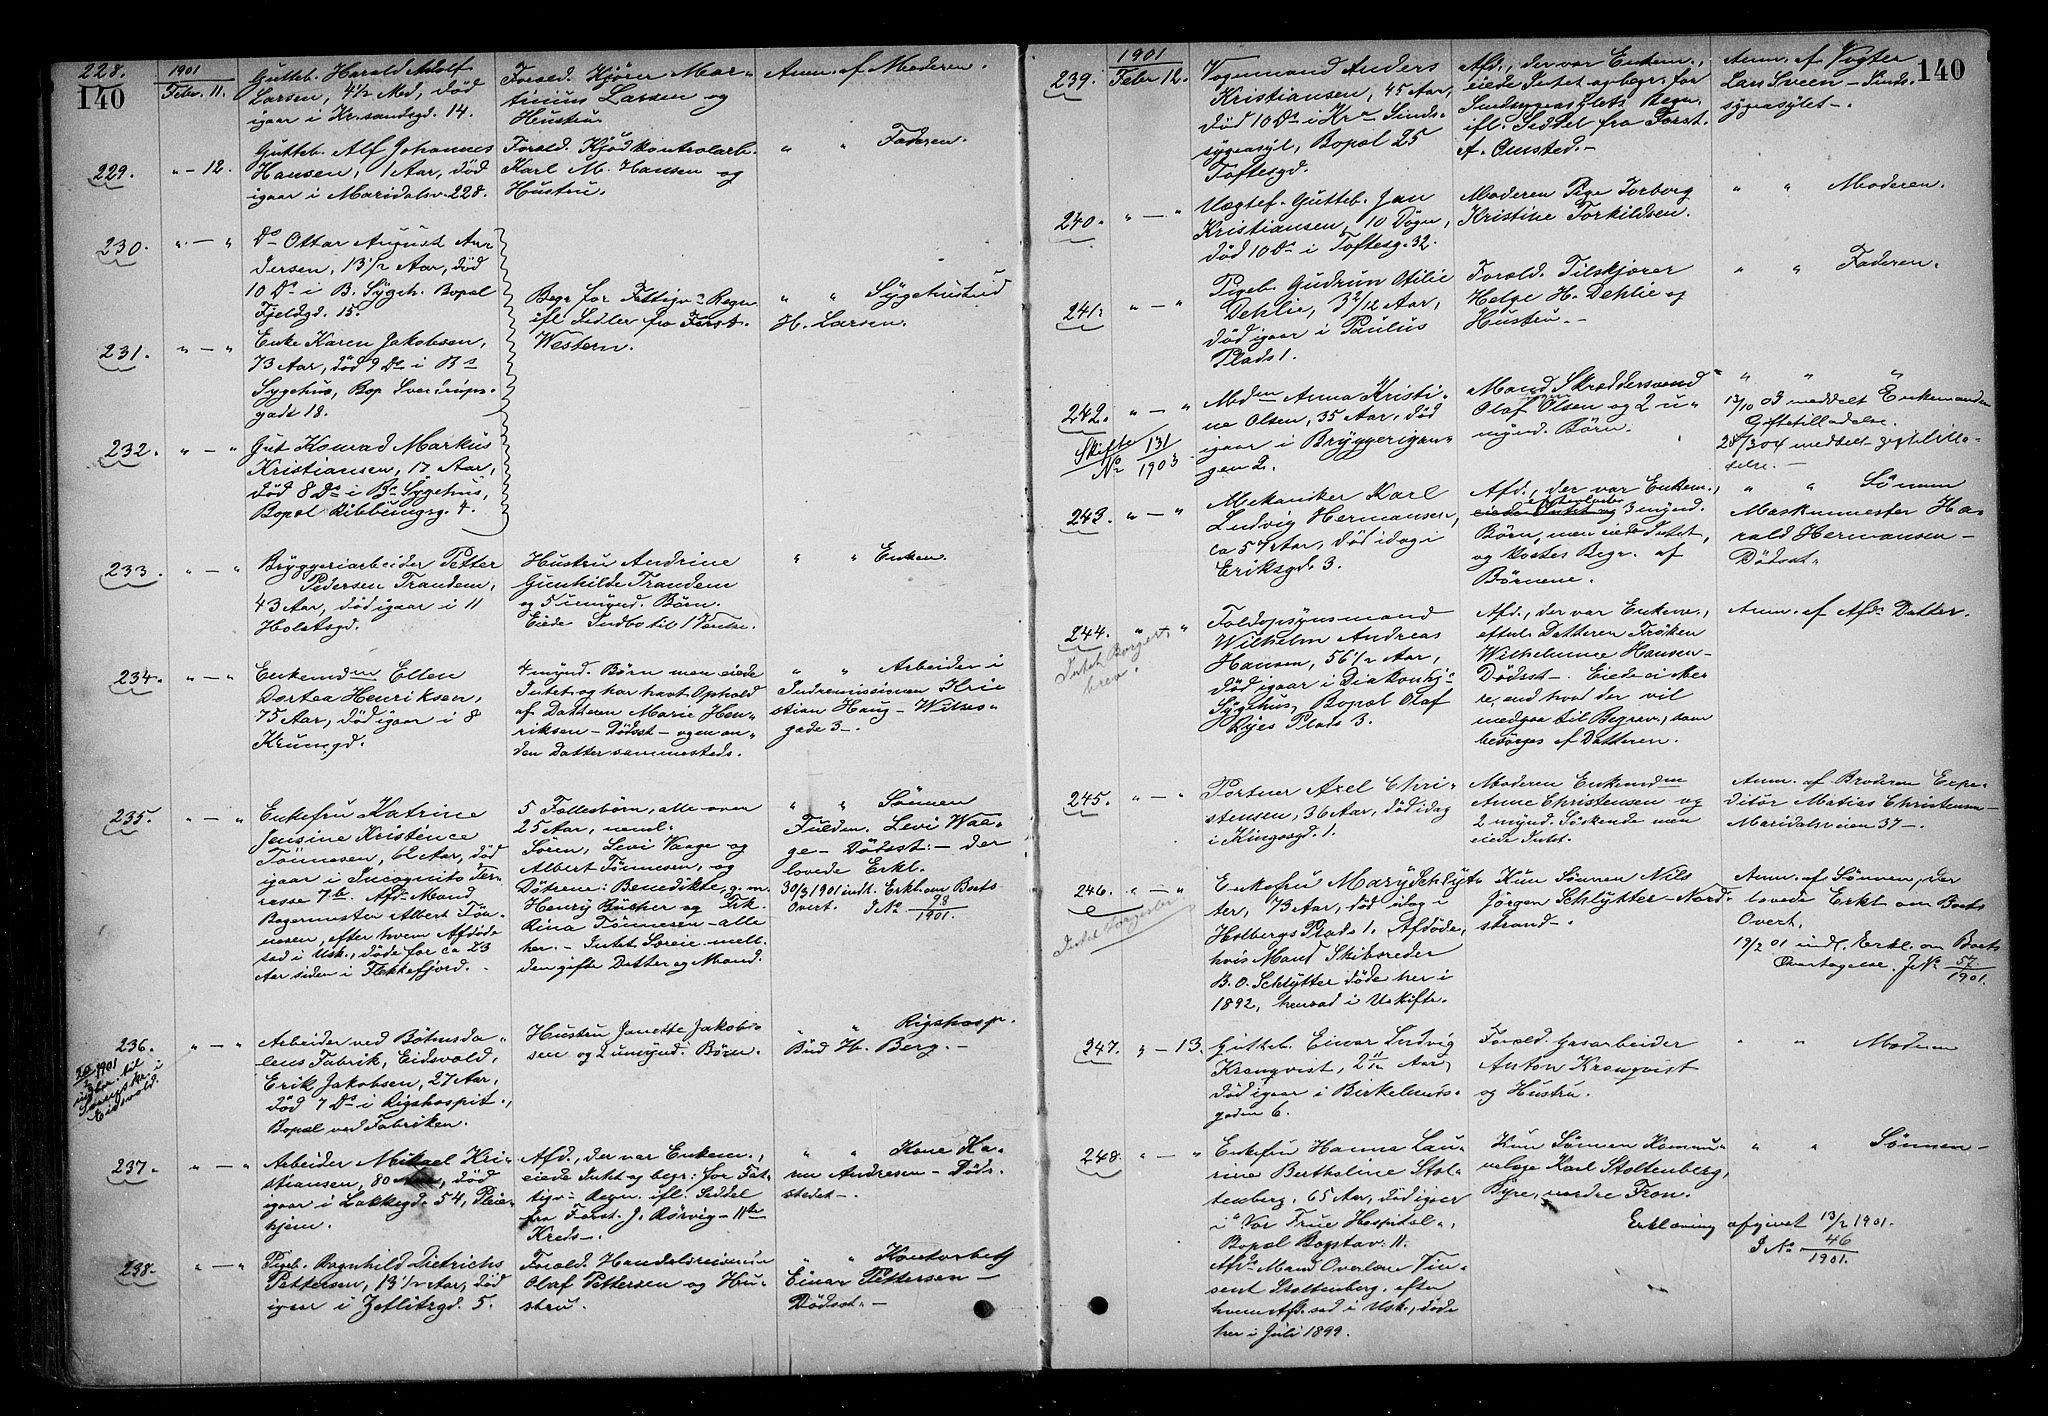 228.
140
1901
Febr. 11.
Gutteb. Harald Adolf
Larsen, 4½ Mdr, død
igaar i Kr.sandsgd. 14.
Foræld. Kjører Mar-
tinius Larsen og
Hustru.
Anm. af Moderen.
229.
" - 12.
Gutteb. Alf Johannes
Hansen, 1 Aar, død
igaar i Maridalsv. 228.
Foræld. Kjødkontrolarb.
Karl M. Hansen og
Hustru.
" " Faderen.
230.
" - "
Do Ottar August An-
dersen, 13½ Aar, død
10 Ds i B. Sygeh. Bopæl
Fjeldgd. 15.
Begr. for Fattigv. Regn.
ifl. Sedler fra Forst.
Western.
" " Sygehusbud
H. Larsen.
231.
" - "
Enke Karen Jakobsen,
73 Aar, død 9 Ds i Bs
Sygehus, Bop. Sverdrups-
gade 18.
232.
" - "
Gut Konrad Markus
Kristiansen, 17 Aar,
død 8 Ds i Bs Sygehus,
Bopæl Ribbungsg. 4.
233.
" - "
Bryggeriarbeider Petter
Pedersen Trandem,
43 Aar, død igaar i 11
Holstsgd.
Hustru Andrine
Gunhilde Trandem
og 5 umynd. Børn.
Eiede Indbo til 1 Værelse.
" " Enken.
234.
" - "
Enkemdm Ellen
Dortea Henriksen,
75 Aar, død igaar i 8
Krumgd.
4 mynd. Børn men eiede
Intet og har havt Ophold
af Datteren Marie Hen-
riksen - Dødsst - og en an-
den Datter sammesteds.
" " Arbeider i
Indremissionen Kri-
stian Haug - Wilses-
gade 3 -.
235.
" - "
Enkefru Katrine
Jensine Kristence
Tönnesen, 62 Aar, død
igaar i Incognito Ter-
rasse 7b. Afd. Mand
Bagermester Albert Tön-
nesen, efter hvem Afdøde
sad i Usk., døde for ca 23
Aar siden i Flekkefjord.
5 Fællesbörn, alle over
25 Aar, neml.
Søren, Levi Vaage og
Albert Tönnesen, og
Døtrene: Benedikte, g. m.
Henry Bücher og
Rina Tönnesen - alle
her. - Intet Særeie mell.
den gifte Datter og Mand.
" " Sönnen
Levi Waa-
ge - Dødsst: - der
lovede Erkl.
30/3 1901 indl. Erkl. om Boets
Overt. J No 98/1901.
236.
20/2 1901
" - "
Arbeider ved Böhnsda-
lens Fabrik, Eidsvold,
Erik Jakobsen, 27 Aar,
død 7 Ds i Rigshospit.,
Bopæl ved Fabriken.
Hustru Janette Jakob-
sen og 2 umynd. Børn.
" " Rigshosp.
Bud H. Berg. -
237.
" - "
Arbeider Mikael Kri-
stiansen, 80 Aar, død
igaar i Lakkegd. 54, Pleie-
hjem.
Afd., der var Enkem.,
eiede Intet og begr. for Fat-
tigv. Regn. ifl. Seddel
fra Forst. J. Rørvig - 11te
Kreds -.
" " Kone Ha-
na Andresen - Døds-
stedet -.
238.
" - "
Pigeb. Ragnhild Dietrichs
Pettersen, 13½ Aar, død
igaar i Zetlitzgd. 5.
Foræld. Handelsreisende
Olaf Pettersen og Hu-
stru.
" " Kontorbetj
Einar Pettersen -
Dødsst. -
140
239.
1901
Febr 12.
Vognmand Anders
Kristiansen, 45 Aar,
død 10 Ds i Kra Sinds-
sygeasyl, Bopæl 25
Toftesgd.
Afd., der var Enkem.,
eiede Intet og begr. for
Sindssygeasylets Regn.
ifl. Seddel fra Forst.
A. Omsted. -
Anm. af Vogter
Lars Sveen - Sinds-
sygeasylet -.
240.
" - "
Uægtef. Gutteb. Jan
Kristiansen, 10 Døgn,
død 10 Ds i Toftesg. 32.
Moderen Pige Torborg
Kristine Torkildsen.
" " Moderen.
241.
" - "
Pigeb. Gudrun Otilie
Dehlie, 3 2/12 Aar,
død igaar i Paulus
Plads 1.
Foræld. Tilskjærer
Helge H. Dehlie og
Hustru. -
" " Faderen.
242.
Skifte
No 131/1903
" - "
Mdm Anna Kristi-
ne Olsen, 35 Aar, død
igaar i Bryggerigan-
gen 2.
Mand Skræddersvend
Olaf Olsen og 2 u-
mynd. Børn.
" " "
17/10 03 meddelt Enkemanden
Giftetilladelse.
28/3 04 meddelt giftetilla-
delse. -
243.
" - "
Mekaniker Karl
Ludvig Hermansen,
ca 57 Aar, død idag i
Eriksgd. 3.
Afd., der var Enkem.,
efterlader
eiede Intet og 3 mynd.
Börn, men eiede Intet,
og kostes Begr. af
Børnene.
" " Sönnen
Maskinmester Ha-
rald Hermansen -
Dødsst.
244.
Intet Borger-
brev.
" "
Toldopsynsmand
Wilhelm Andreas
Hansen, 56½ Aar,
død igaar i Diakonhj.
Sygehus, Bopæl Olaf
Ryes Plads 3.
Afd., der var Enkem.,
efterl. Datteren Frøken
Wilhelmine Hansen -
Dødsst -. Eiede ei me-
re, end hvad der vil
medgaa til Begrav., som
besørges af Datteren.
Anm. af Afds Datter.
245.
" - "
Portner Axel Chri-
stensen, 36 Aar, død idag
i Kingosgd. 1.
Moderen Enkemdm
Anne Christensen og
2 mynd. Søskende men
eiede Intet.
Anm. af Broderen Expe-
ditör Matias Christensen -
Maridalsveien 37 -.
246.
" - "
Enkefru Mary Schlyt-
ter, 73 Aar, død idag i
Holbergs Plads 1. Afdøde,
hvis Mand Skibsreder
B. O. Schlytter døde her i
1892, hensad i Uskifte.
Kun Sønnen Nils
Jörgen Schlytter - Nord-
strand -.
Anm. af Sønnen, der
lovede Erkl. om Boets
Overt.
19/2 01 indl. Erkl. om Boets
Overtagelse. J No 57/1901.
247.
" - 13.
Gutteb. Einar Ludvig
Kronqvist, 2 11/12 Aar,
død igaar i Birkelunds-
gaden 6.
Foræld. Gasarbeider
Anton Kronqvist
og Hustru.
" " Moderen
248.
" - "
Enkefru Hanna Lau-
rine Bertholine Stol-
tenberg, 65 Aar, død igaar
i "Vor Frue Hospital",
Bopæl Bogstadv. 11.
Afds Mand Overlære Vin-
sent Stoltenberg, efter
hvem Afd. sad i Usk., døde
her i Juli 1899.
Kun Sønnen Kommu-
nelæge Karl Stoltenberg,
Byre, nordre Fron.
" " Sønnen -
Erklæring afgivet 13/2 1901.
J No 46/1901.